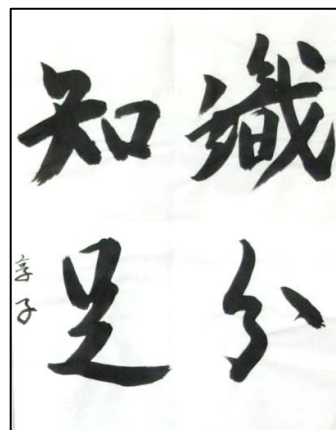 識分
知足
享子